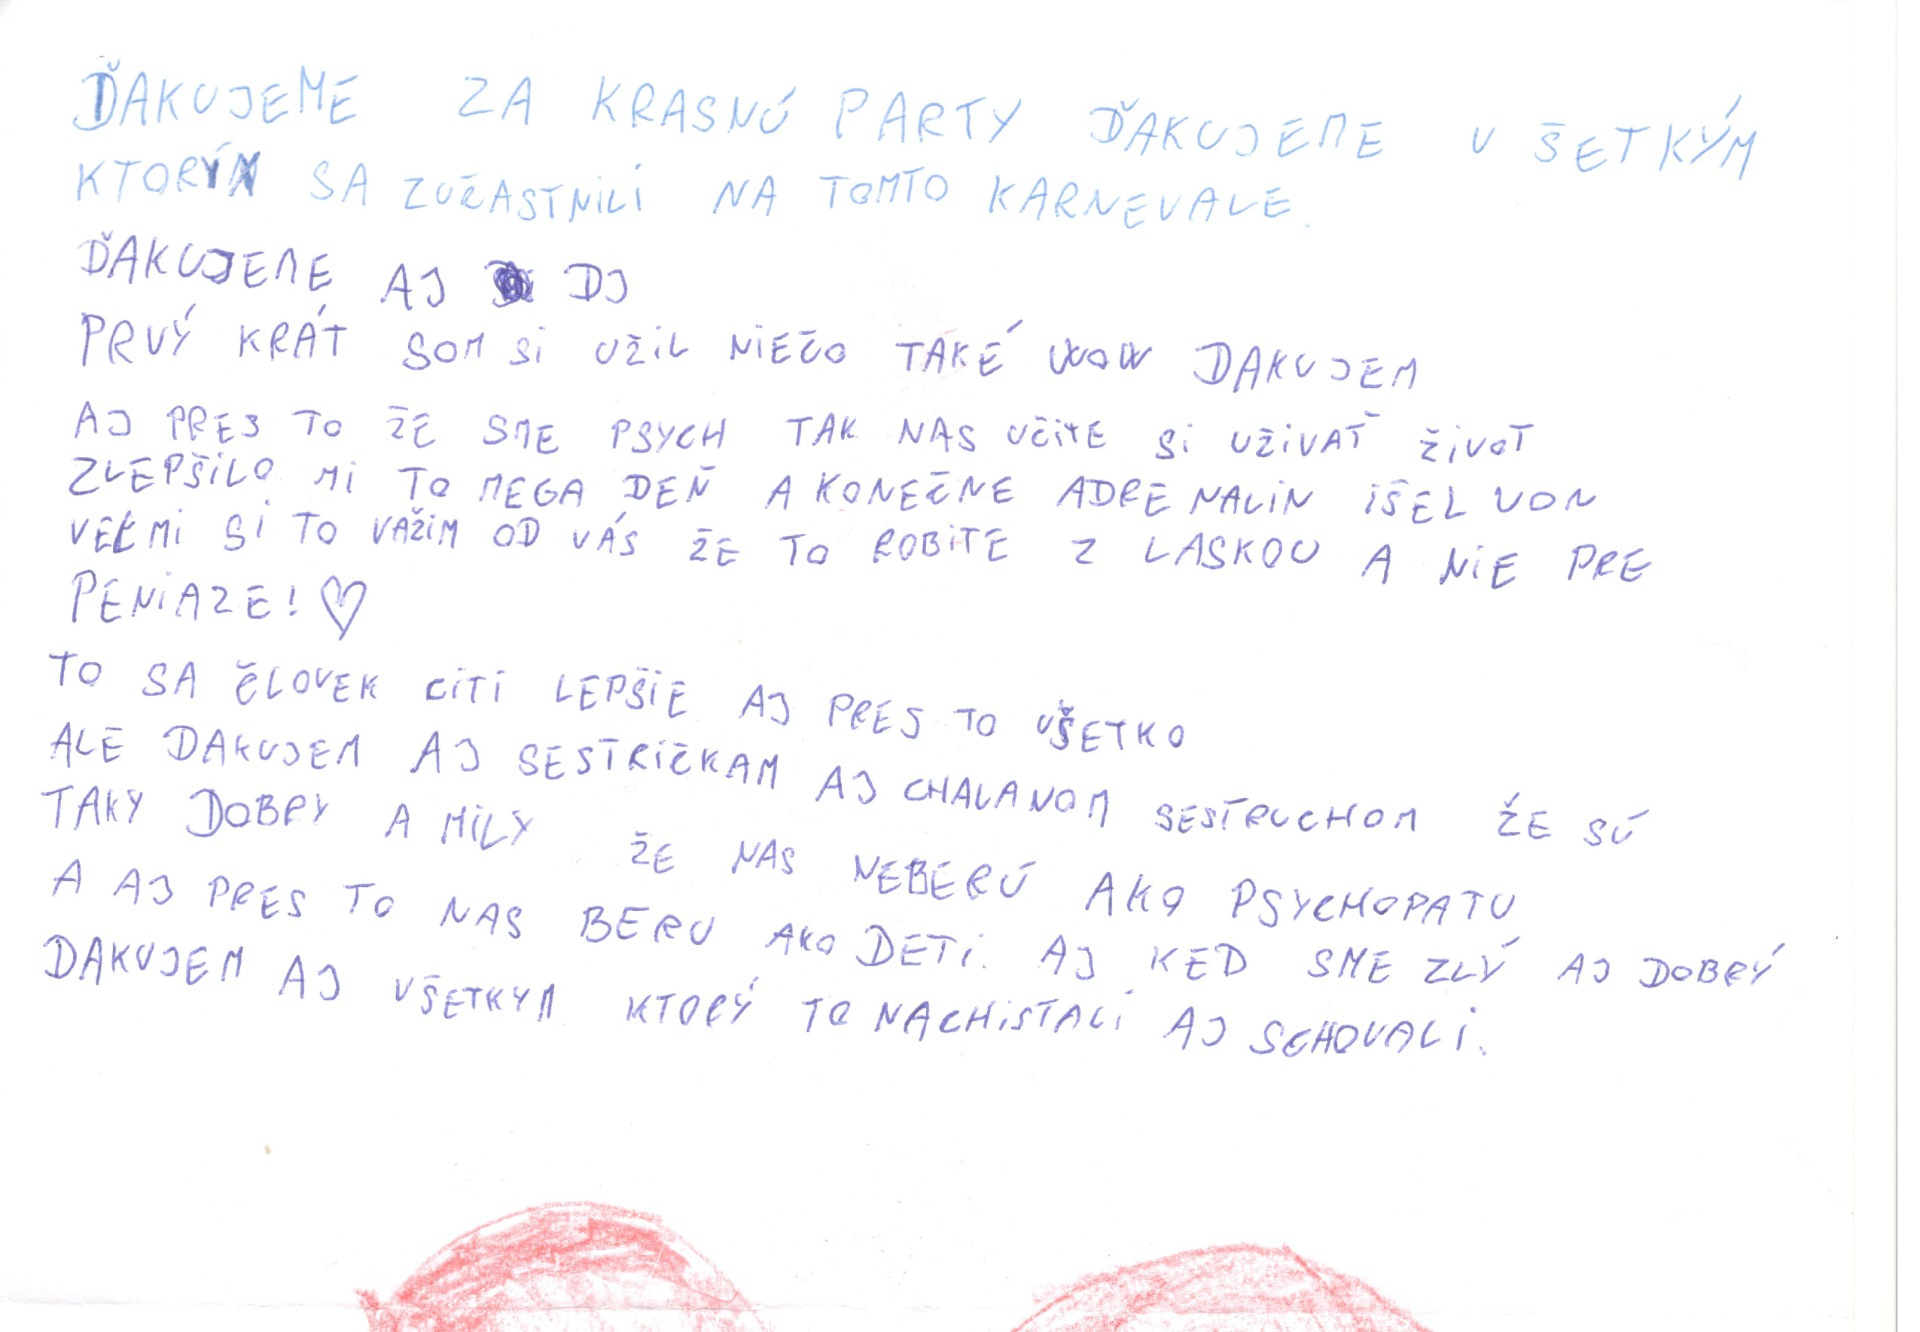 ĎAKUJEME ZA KRASNÚ PARTY ĎAKUJEME VŠETKÝM
KTORÝM SA ZUČASTNILI NA TOMTO KARNEVALE.
ĎAKUJEME AJ DJ
PRVÝ KRÁT SOM SI UŽIL NIEČO TAKÉ WOW DAKUJEM
AJ PRES TO ŽE SME PSYCH TAK NAS UČITE SI UŽIVAŤ ŽIVOT
ZLEPŠILO MI TO MEGA DEŇ A KONEČNE ADRENALIN IŠEL VON
VEĽMI SI TO VAŽIM OD VÁS ŽE TO ROBITE Z LASKOU A NIE PRE
PENIAZE! ♡
TO SA ČLOVEK CITI LEPŠIE AJ PRES TO VŠETKO
ALE DAKUJEM AJ SESTRIČKAM AJ CHALANOM SESTRUCHOM ŽE SÚ
TAKY DOBRY A MILY ŽE NAS NEBERÚ AKO PSYCHOPATU
A AJ PRES TO NAS BERU AKO DETI. AJ KED SME ZLÝ AJ DOBRÝ
DAKUJEM AJ VŠETKYM KTORÝ TO NACHISTALI AJ SCHOVALI.